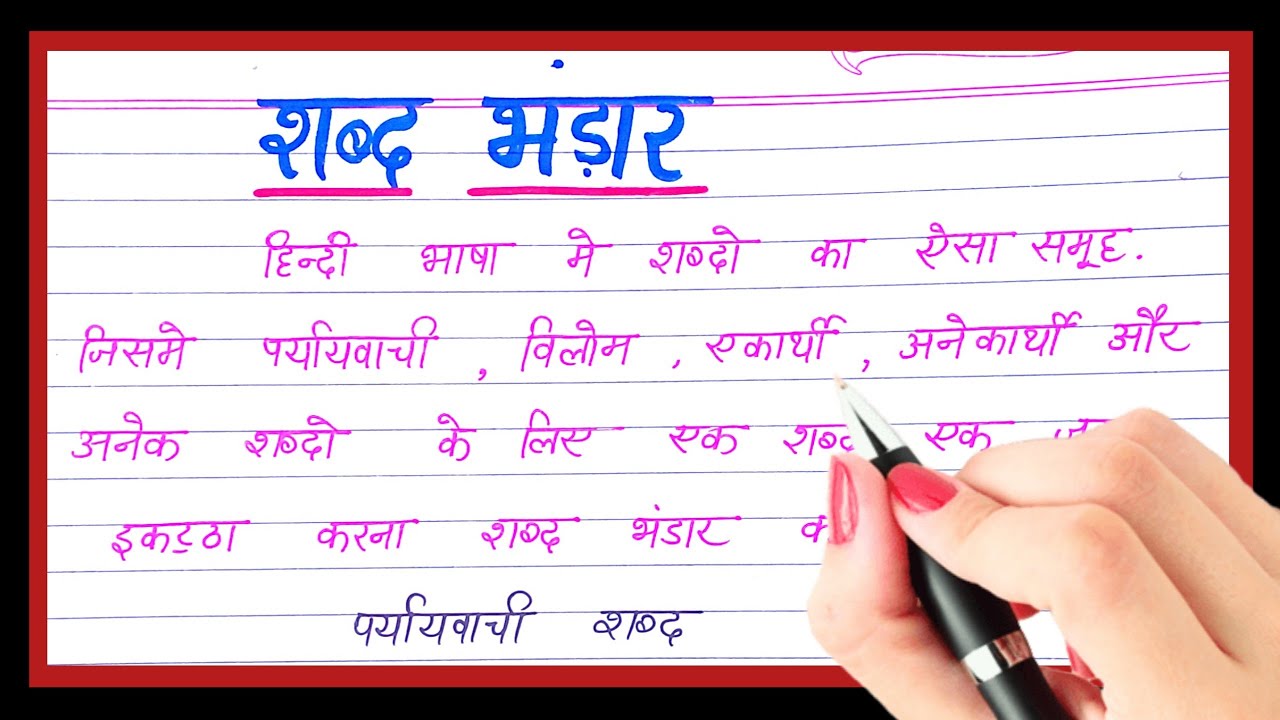 शब्द भंड़ार
हिन्दी भाषा मे शब्दो का ऐसा समूह.
जिसमे पर्यायवाची , विलोम , एकार्थी , अनेकार्थी और
अनेक शब्दो के लिए एक शब्द एक
इकट्ठा करना शब्द भंडार
पर्यायवाची शब्द